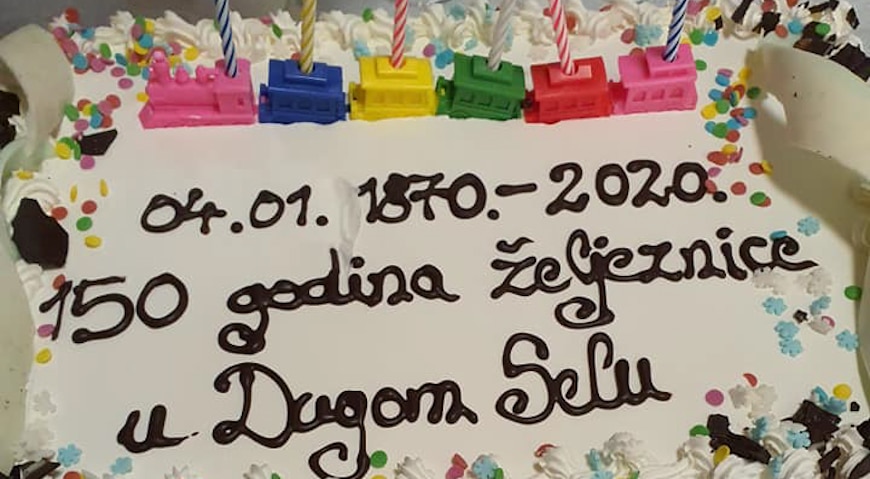 04.01. 1870.-2020.
150 godina željeznice
u Dugom Selu